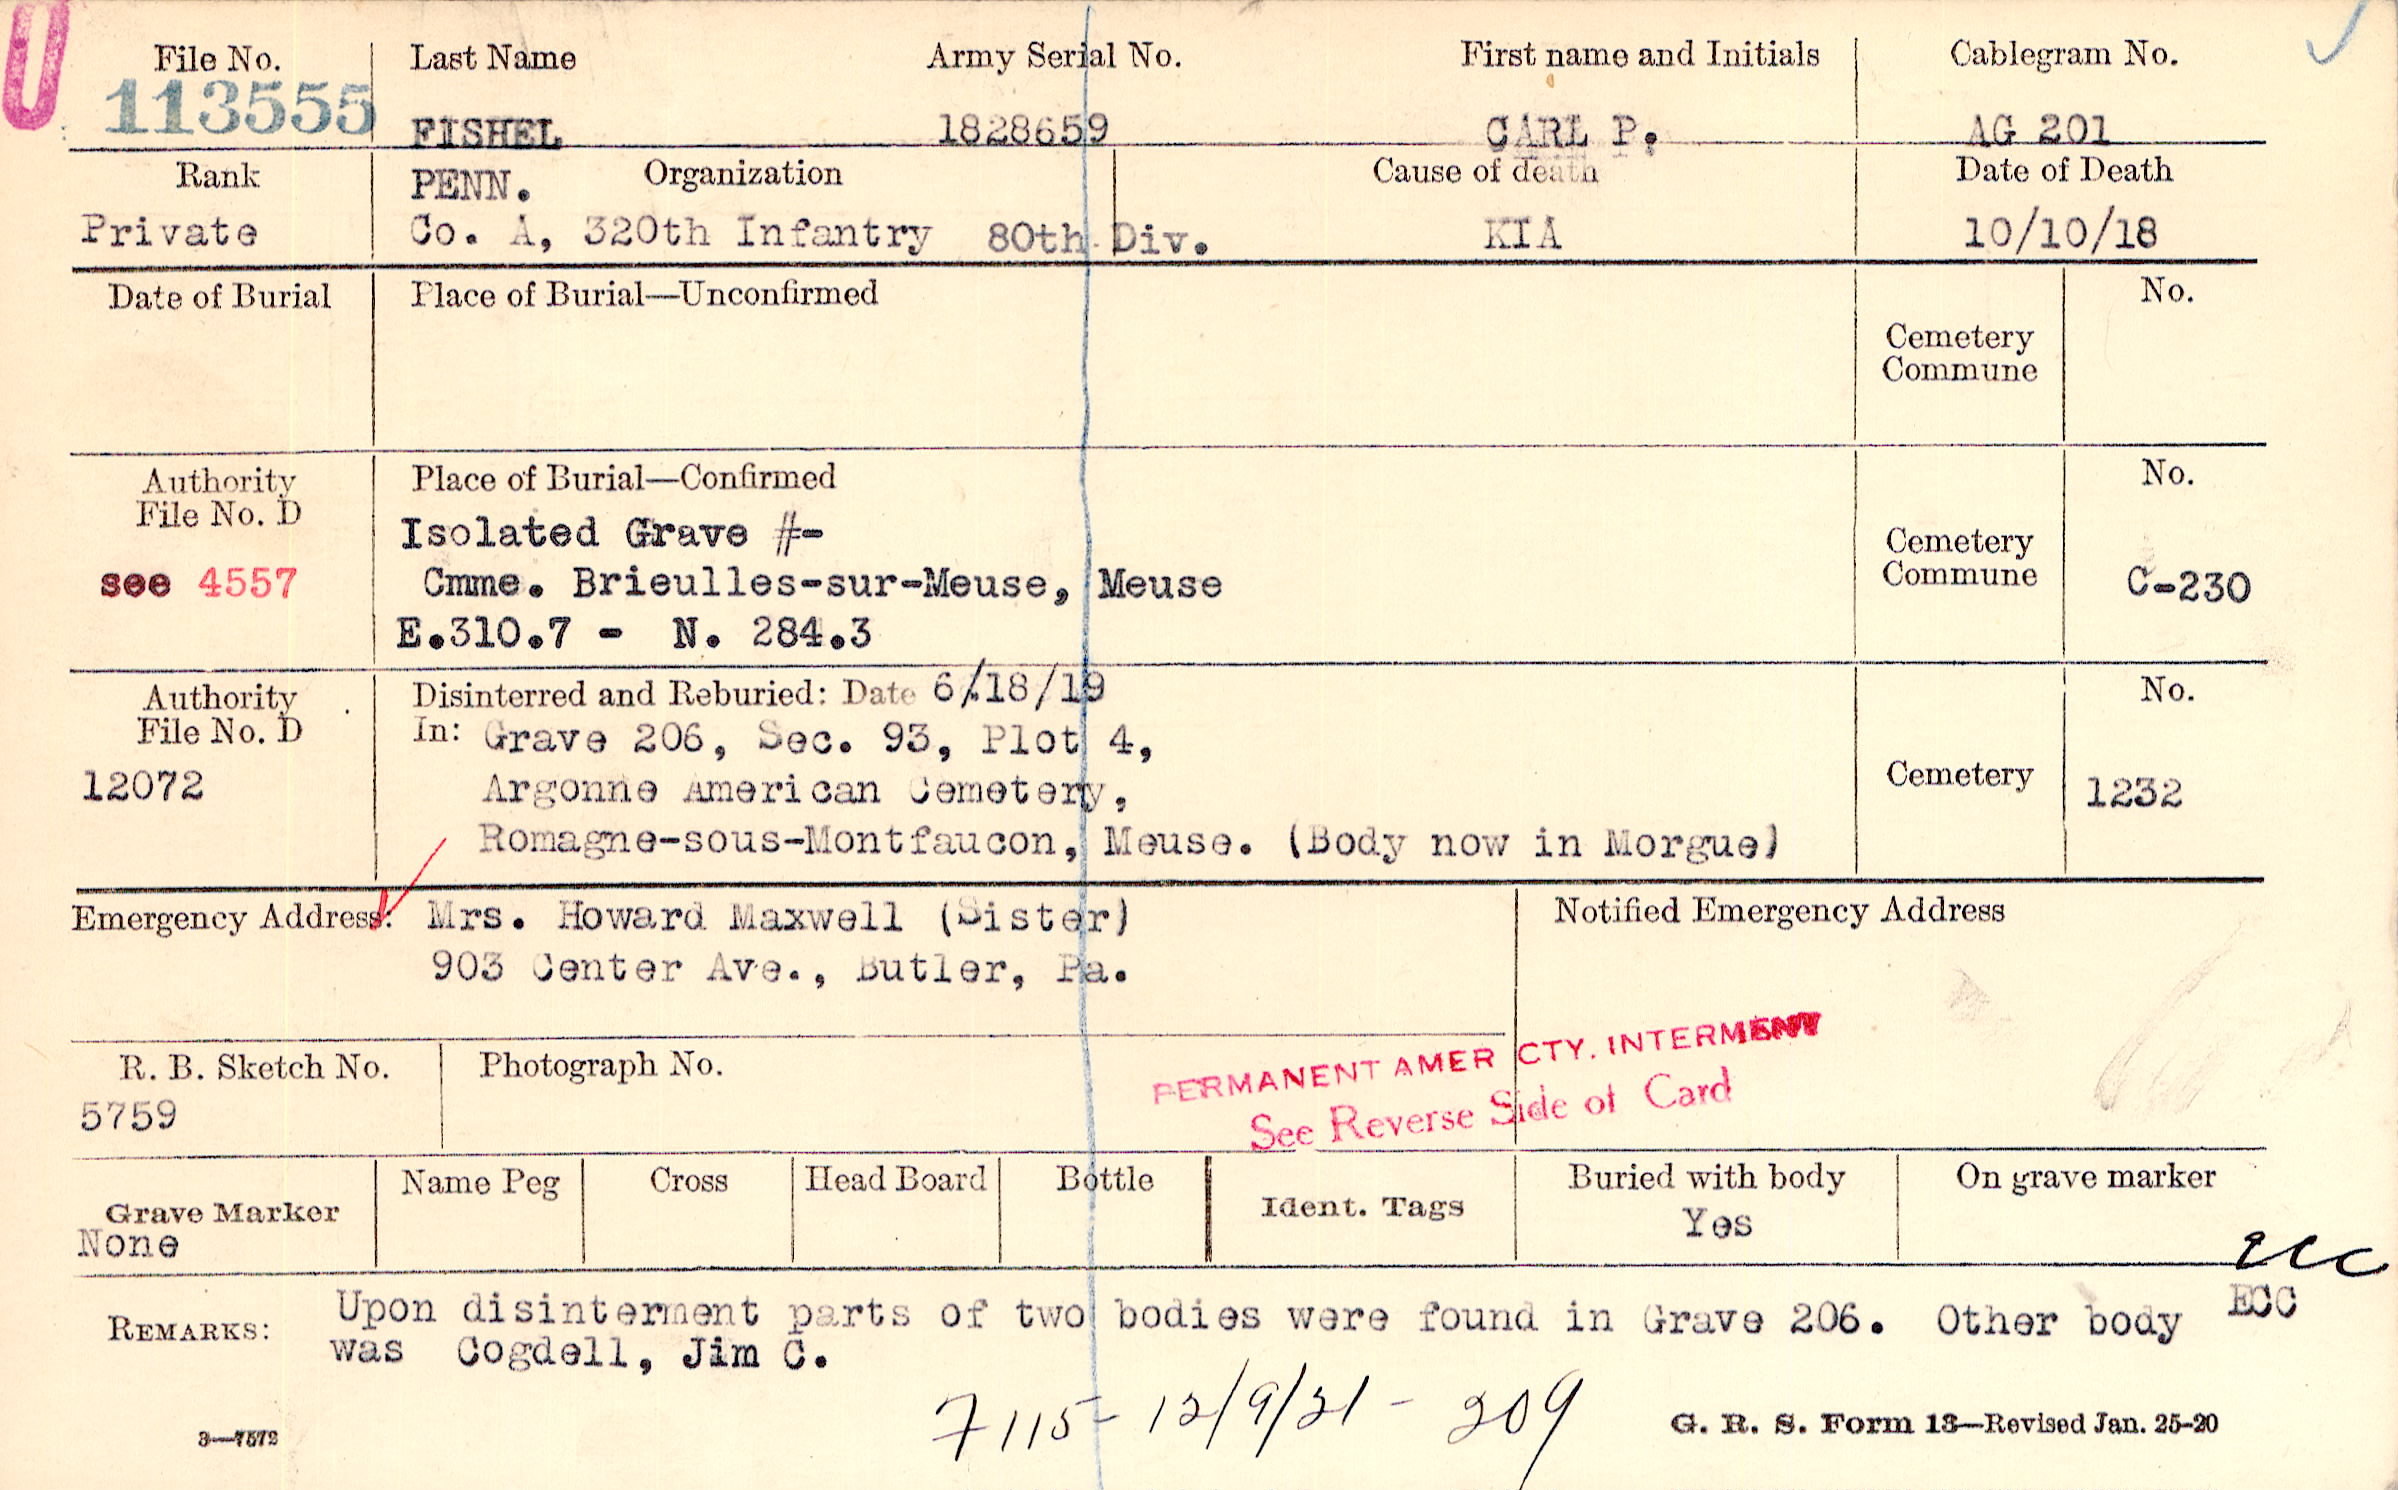 U
File No.
113555
Last Name
FISHEL
Army Serial No.
1828659
First name and Initials
CARL P.
Cablegram No.
AG 201
Rank
Private
PENN. Organization
Co. A, 320th Infantry 80th Div.
Cause of death
KIA
Date of Death
10/10/18
Date of Burial
Place of Burial—Unconfirmed
Cemetery
Commune
No.
Authority
File No. D
see 4557
Place of Burial—Confirmed
Isolated Grave #-
Cmme. Brieulles-sur-Meuse, Meuse
E.310.7 - N. 284.3
Cemetery
Commune
No.
C-230
Authority
File No. D
12072
Disinterred and Reburied: Date 6/18/19
In: Grave 206, Sec. 93, Plot 4,
Argonne American Cemetery,
Romagne-sous-Montfaucon, Meuse. (Body now in Morgue)
Cemetery
No.
1232
Emergency Address: Mrs. Howard Maxwell (Sister)
903 Center Ave., Butler, Pa.
Notified Emergency Address
R. B. Sketch No.
5759
Photograph No.
PERMANENT AMER CTY. INTERMENT
See Reverse Side of Card
Grave Marker
None
Name Peg
Cross
Head Board
Bottle
Ident. Tags
Buried with body
Yes
On grave marker
ecc
ECC
REMARKS: Upon disinterment parts of two bodies were found in Grave 206. Other body
was Cogdell, Jim C.
7115- 12/9/21 - 209
3—7572
G. R. S. Form 13—Revised Jan. 25-20